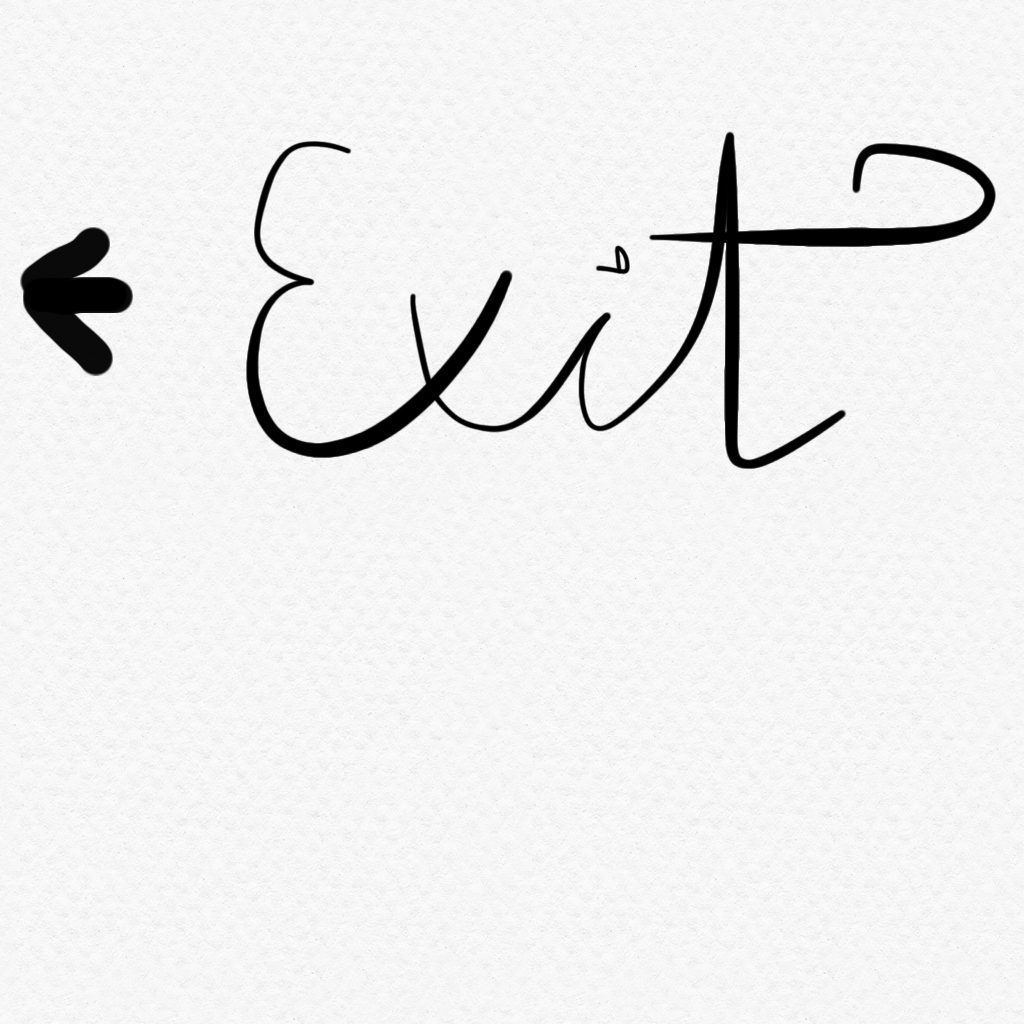 ← Exit